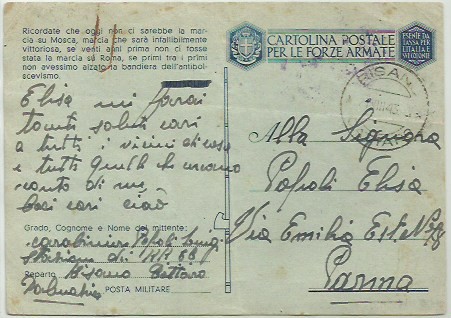 Ricordate che oggi non ci sarebbe la mar-
cia su Mosca, marcia che sarà infallibilmente
vittoriosa, se venti anni prima non ci fosse
stata la marcia su Roma, se primi tra i primi
non avessimo alzato la bandiera dell'antibol-
scevismo.
CARTOLINA POSTALE
PER LE FORZE ARMATE
ESENTE DA
TASSA PER
L'ITALIA E
SUE COLONIE
Elisa mi farai
tanti saluti cari
a tutti i vicini di casa
e tutti quelli che
conto di me
Baci cari ciao
Alla Signora
Popoli Elisa
Via Emilia Est
Parma
Grado, Cognome e Nome del mittente:
carabiniere Popoli Luigi
Stazione di RR
Reparto
Dalmazia
POSTA MILITARE